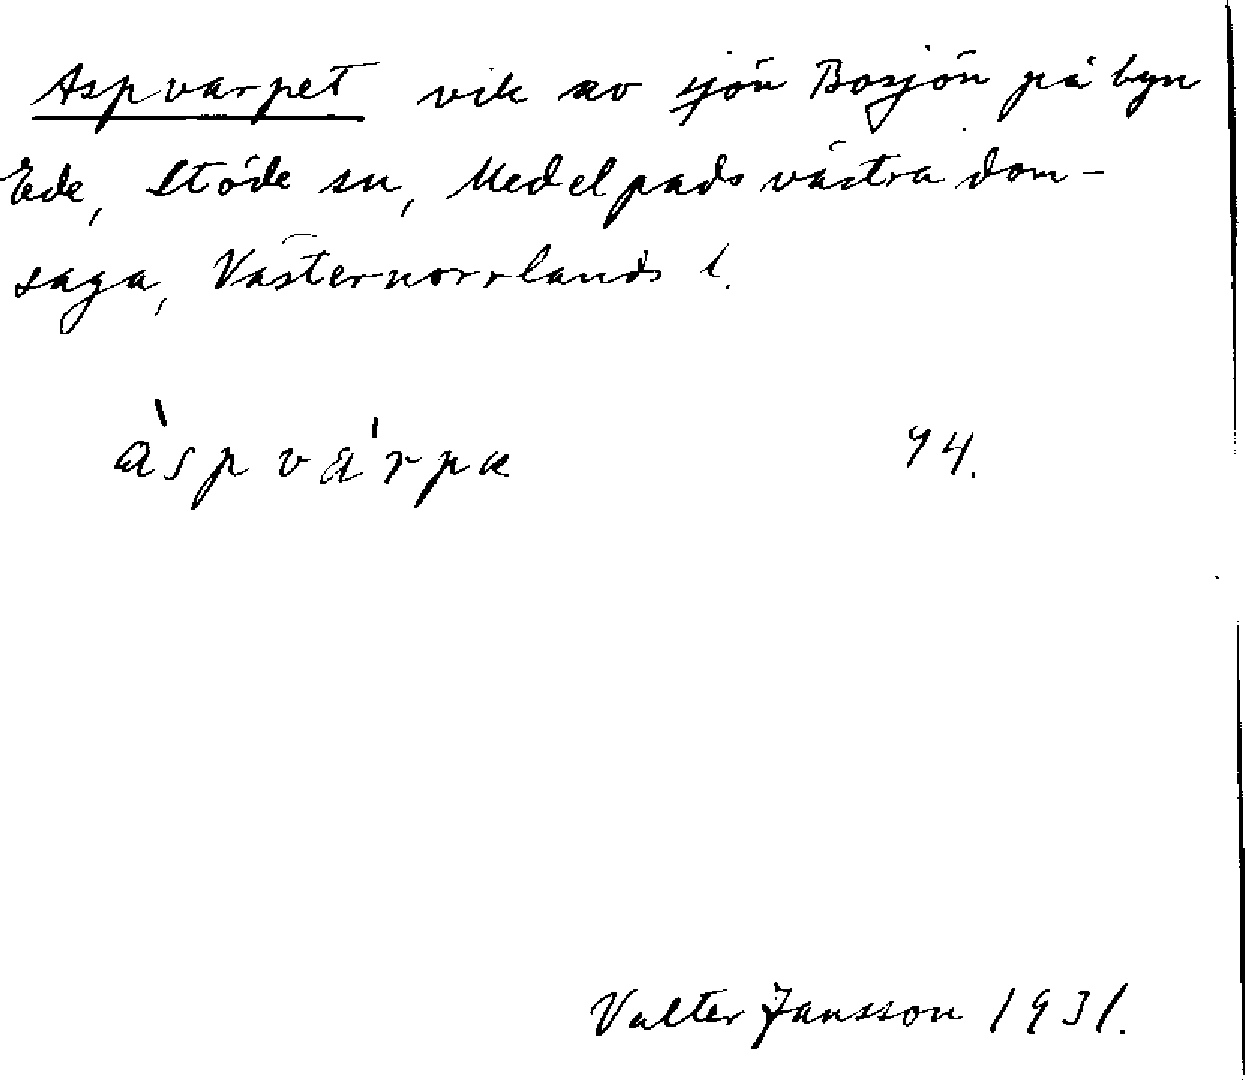 Aspvarpet vik av sjön Bosjön på byn
Ede, Stöde sn, Medelpads västra dom-
saga, Västernorrlands l.
àspvárpα 74.
Valter Jansson 1931.